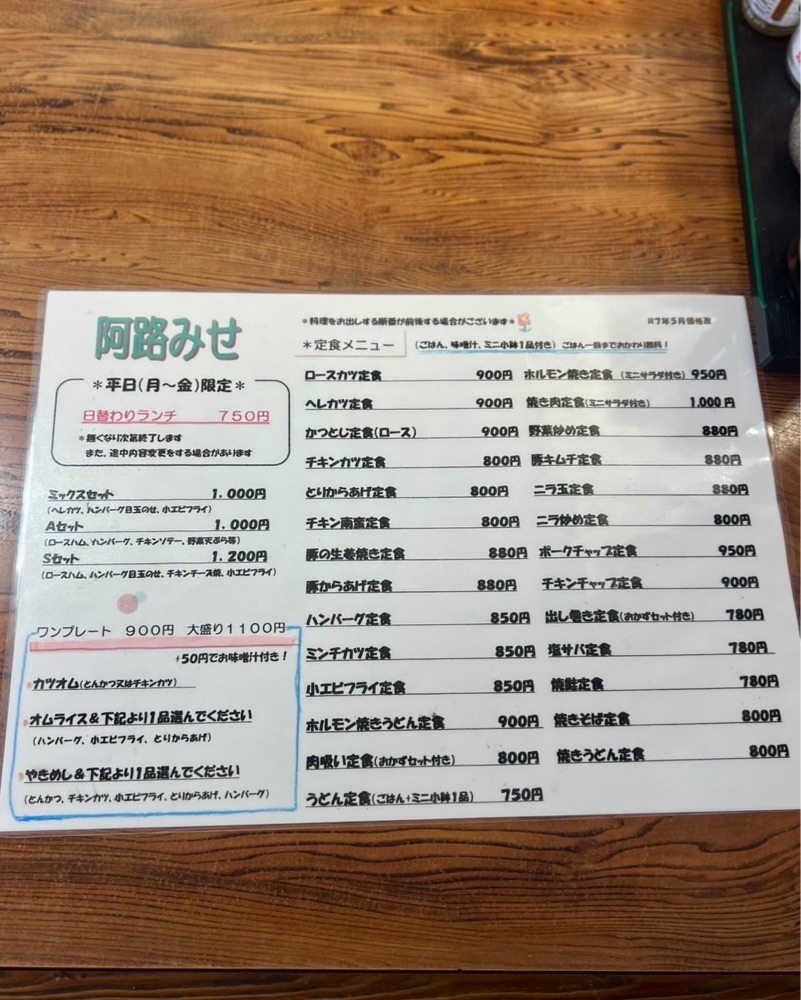 阿路みせ
＊平日(月～金)限定＊
日替わりランチ 750円
＊無くなり次第終了します
また、途中内容変更をする場合があります
ミックスセット 1.000円
(ヘレカツ、ハンバーグ目玉のせ、小エビフライ)
Aセット 1.000円
(ロースハム、ハンバーグ、チキンソテー、野菜天ぷら等)
Sセット 1.200円
(ロースハム、ハンバーグ目玉のせ、チキンチーズ焼、小エビフライ)
ワンプレート 900円 大盛り1100円
+50円でお味噌汁付き！
＊カツオム(とんかつ又はチキンカツ)
＊オムライス＆下記より1品選んでください
(ハンバーグ、小エビフライ、とりからあげ)
＊やきめし＆下記より1品選んでください
(とんかつ、チキンカツ、小エビフライ、とりからあげ、ハンバーグ)
＊料理をお出しする順番が前後する場合がございます＊
R7年5月価格改
＊定食メニュー (ごはん、味噌汁、ミニ小鉢1品付き) ごはん一回までおかわり無料！
ロースカツ定食 900円
ヘレカツ定食 900円
かつとじ定食(ロース) 900円
チキンカツ定食 800円
とりからあげ定食 800円
チキン南蛮定食 800円
豚の生姜焼き定食 880円
豚からあげ定食 880円
ハンバーグ定食 850円
ミンチカツ定食 850円
小エビフライ定食 850円
ホルモン焼きうどん定食 900円
肉吸い定食(おかずセット付き) 800円
うどん定食(ごはん+ミニ小鉢1品) 750円
ホルモン焼き定食 (ミニサラダ付き) 950円
焼き肉定食(ミニサラダ付き) 1.000円
野菜炒め定食 880円
豚キムチ定食 880円
ニラ玉定食 880円
ニラ炒め定食 800円
ポークチャップ定食 950円
チキンチャップ定食 900円
出し巻き定食(おかずセット付き) 780円
塩サバ定食 780円
焼鮭定食 780円
焼きそば定食 800円
焼きうどん定食 800円